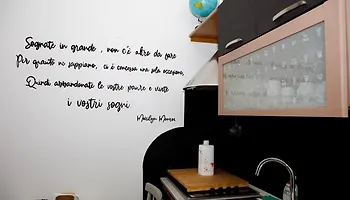 Sognate in grande, non c'è altro da fare
Per quanto ne sappiamo, ci è concessa una sola occasione,
Quindi abbandonate le vostre paure e vivete
i vostri sogni
Marilyn Monroe